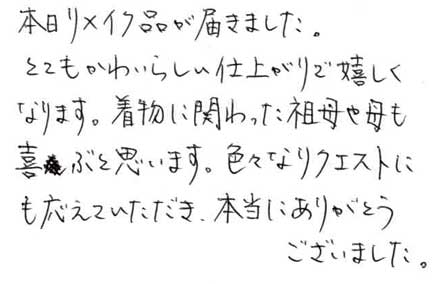 本日リメイク品が届きました。
とてもかわいらしい仕上がりで嬉しく
なります。着物に関わった祖母や母も
喜ぶと思います。色々なリクエストに
も応えていただき、本当にありがとう
ございました。